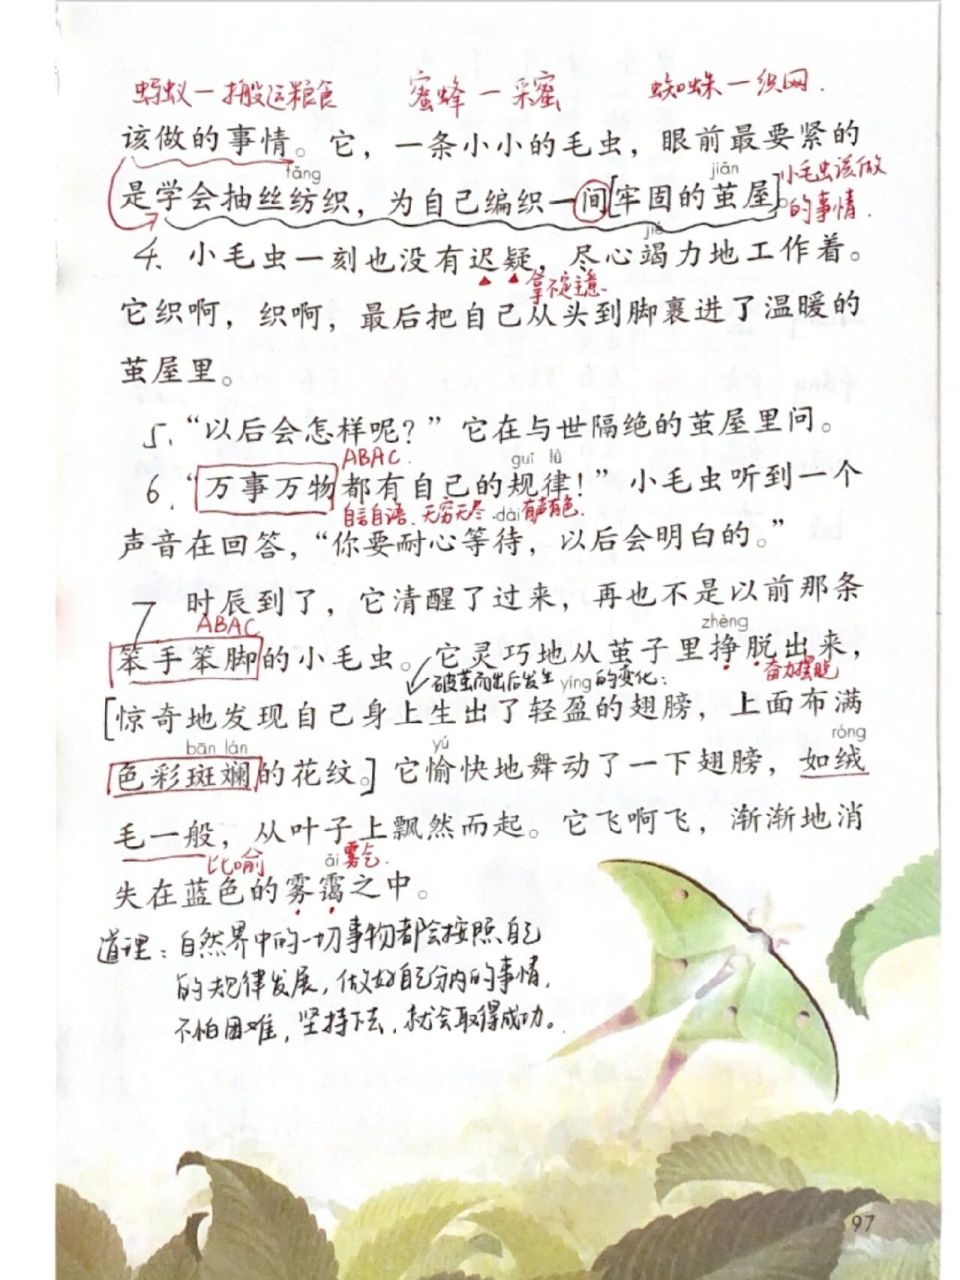 蚂蚁一搬运粮食 蜜蜂一采蜜 蜘蛛一织网.
该做的事情。它，一条小小的毛虫，眼前最要紧的
fǎng jiǎn 小毛虫该做
是学会抽丝纺织，为自己编织一间[牢固的茧屋]。
的事情.
jié
4. 小毛虫一刻也没有迟疑，尽心竭力地工作着。
拿不定主意.
它织啊，织啊，最后把自己从头到脚裹进了温暖的
茧屋里。
5. “以后会怎样呢？”它在与世隔绝的茧屋里问。
ABAC. guī lǜ
6. “万事万物都有自己的规律！”小毛虫听到一个
自言自语、无穷无尽. dài 有声有色.
声音在回答，“你要耐心等待，以后会明白的。”
7 时辰到了，它清醒了过来，再也不是以前那条
ABAC zhèng
笨手笨脚的小毛虫。它灵巧地从茧子里挣脱出来，
破茧而出后发生 yíng 的变化： 奋力摆脱
[惊奇地发现自己身上生出了轻盈的翅膀，上面布满
bān lán yú róng
色彩斑斓的花纹。]它愉快地舞动了一下翅膀，如绒
毛一般，从叶子上飘然而起。它飞啊飞，渐渐地消
比喻 ǎi 雾气.
失在蓝色的雾霭之中。
道理：自然界中的一切事物都会按照自己
的规律发展，做好自己分内的事情，
不怕困难，坚持下去，就会取得成功。
97